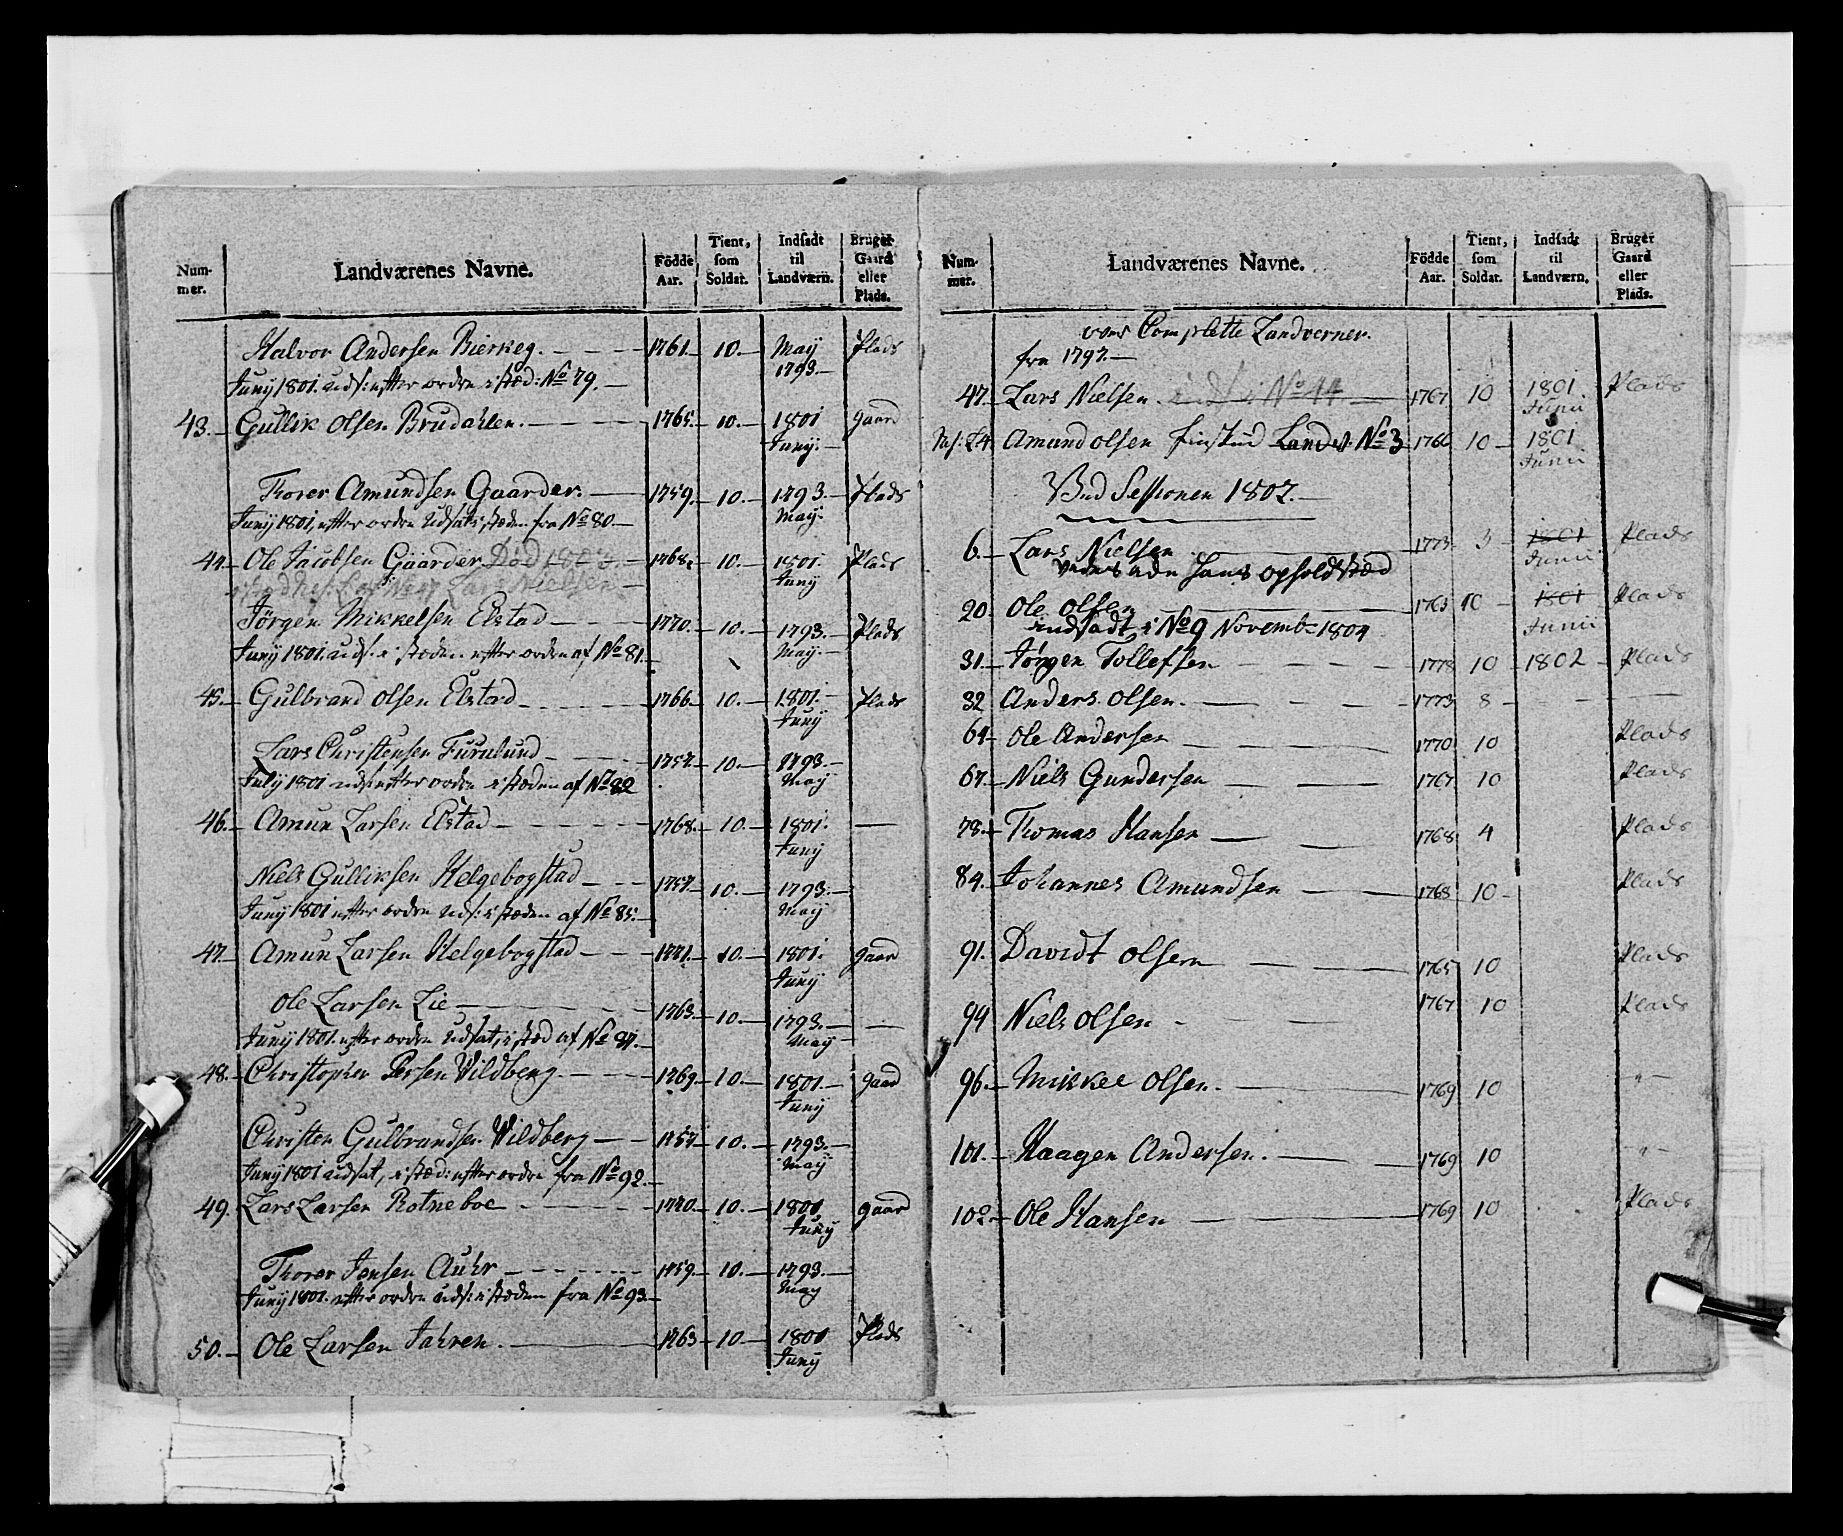 Num-
mer.
Landværenes Navne.
Födde
Aar.
Tient,
som
Soldat.
Indsadt
til
Landværn.
Bruger
Gaard
eller
Plads.
Halvor Andersen Bierkeg. 1761. 10. May 1793. Plads
Juny 1801. uds: efter ordre i stæd: No 79.
43. Gullik Olsen Brudahlen. 1765. 10. 1801 Juny. gaard
Thorer Amundsen Gaarder. 1759. 10. 1793. May. Plads
Juny 1801, efter ordre Udsat i stæden fra No 80.
44. Ole Jacobsen Gaarder Død 1803. 1768. 10. 1801. Juny Plads
Lars Nielsen
Jørgen Mikkelsen Elstad 1770. 10. 1793. May. Plads
Juny 1801. uds: i stæden efter orden af No 81.
45. Gulbrand Olsen Elstad 1766. 10. 1801. Juny Plads
Lars Christensen Furulund 1757. 10. 1793. May
July 1801 uds: efter ordre i stæden af No 82
46. Amun Larsen Elstad 1768. 10. 1801. Juny —
Niels Gulliksen Helgebogstad 1757. 10. 1793. May
Juny 1801 efter ordre Uds: i stæden af No 85.
47. Amun Larsen Helgebogstad 1771. 10. 1801. Juny gaard
Ole Larsen Lie 1763. 10. 1793. May —
Juny 1801. efter ordre Udsat, i stæd af No 87.
48. Christopher Persen Vildberg. 1769. 10. 1801. Juny gaard
Christen Gulbrandsen Vildberg 1757. 10. 1793. May
Juny 1801 udsat, i stæd: efter ordre fra No 92.
49. Lars Larsen Rotneboe 1770. 10. 1801 Juny gaard
Thorer Jensen Auhr 1759. 10. 1793. May
Juny 1801. efter ordre uds: i stæden fra No 93.
50. Ole Larsen Jahren. 1763 10. 1801 Juny Plads
Num-
mer.
Landværenes Navne.
Födde
Aar.
Tient,
som
Soldat.
Indsadt
til
Landværn.
Bruger
Gaard
eller
Plads.
Complette Landverner.
fra 1797.
47. Lars Nielsen No 44 1767 10 1801 Junii Plads
Amund Olsen No 3 1766 10 1801 Junii
Ved Sessionen 1802.
6. Lars Nielsen 1773 3 1801 Junii Plads
hans opholdstæd
20 Ole Olsen 1763 10 1801 Junii Plads
indsadt i No 9 Novemb 1804
31. Jørgen Tollefsen 1778 10 1802 Plads
32 Anders Olsen. 1773 8 —
64 Ole Andersen 1770 10 Plads
67. Niels Gundersen 1767 10 Plads
78. Thomas Hansen 1768 4 Plads
84. Johannes Amundsen 1768 10 Plads
91. Davidt Olsen 1765 10 Plads
94 Niels Olsen 1767 10 Plads
96. Mikkel Olsen. 1769 10 "
101. Haagen Andersen. 1769 10 "
102. Ole Hansen 1769 10 Plads